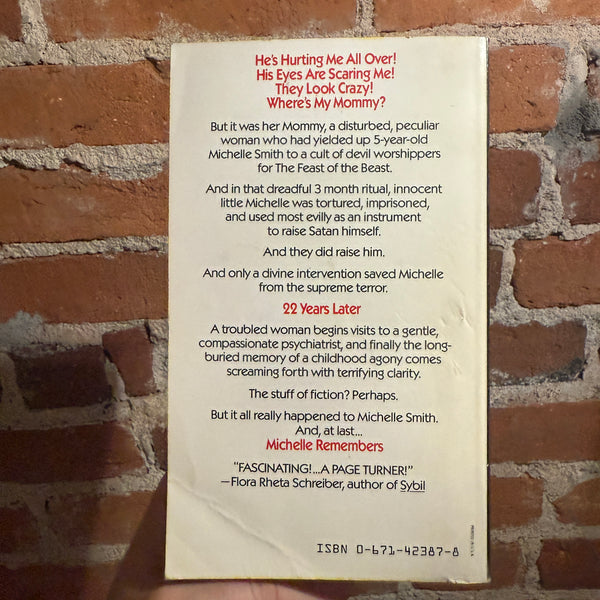 He's Hurting Me All Over!
His Eyes Are Scaring Me!
They Look Crazy!
Where's My Mommy?
But it was her Mommy, a disturbed, peculiar
woman who had yielded up 5-year-old
Michelle Smith to a cult of devil worshippers
for The Feast of the Beast.
And in that dreadful 3 month ritual, innocent
little Michelle was tortured, imprisoned,
and used most evilly as an instrument
to raise Satan himself.
And they did raise him.
And only a divine intervention saved Michelle
from the supreme terror.
22 Years Later
A troubled woman begins visits to a gentle,
compassionate psychiatrist, and finally the long-
buried memory of a childhood agony comes
screaming forth with terrifying clarity.
The stuff of fiction? Perhaps.
But it all really happened to Michelle Smith.
And, at last...
Michelle Remembers
"FASCINATING!...A PAGE TURNER!"
—Flora Rheta Schreiber, author of Sybil
ISBN 0-671-42387-8